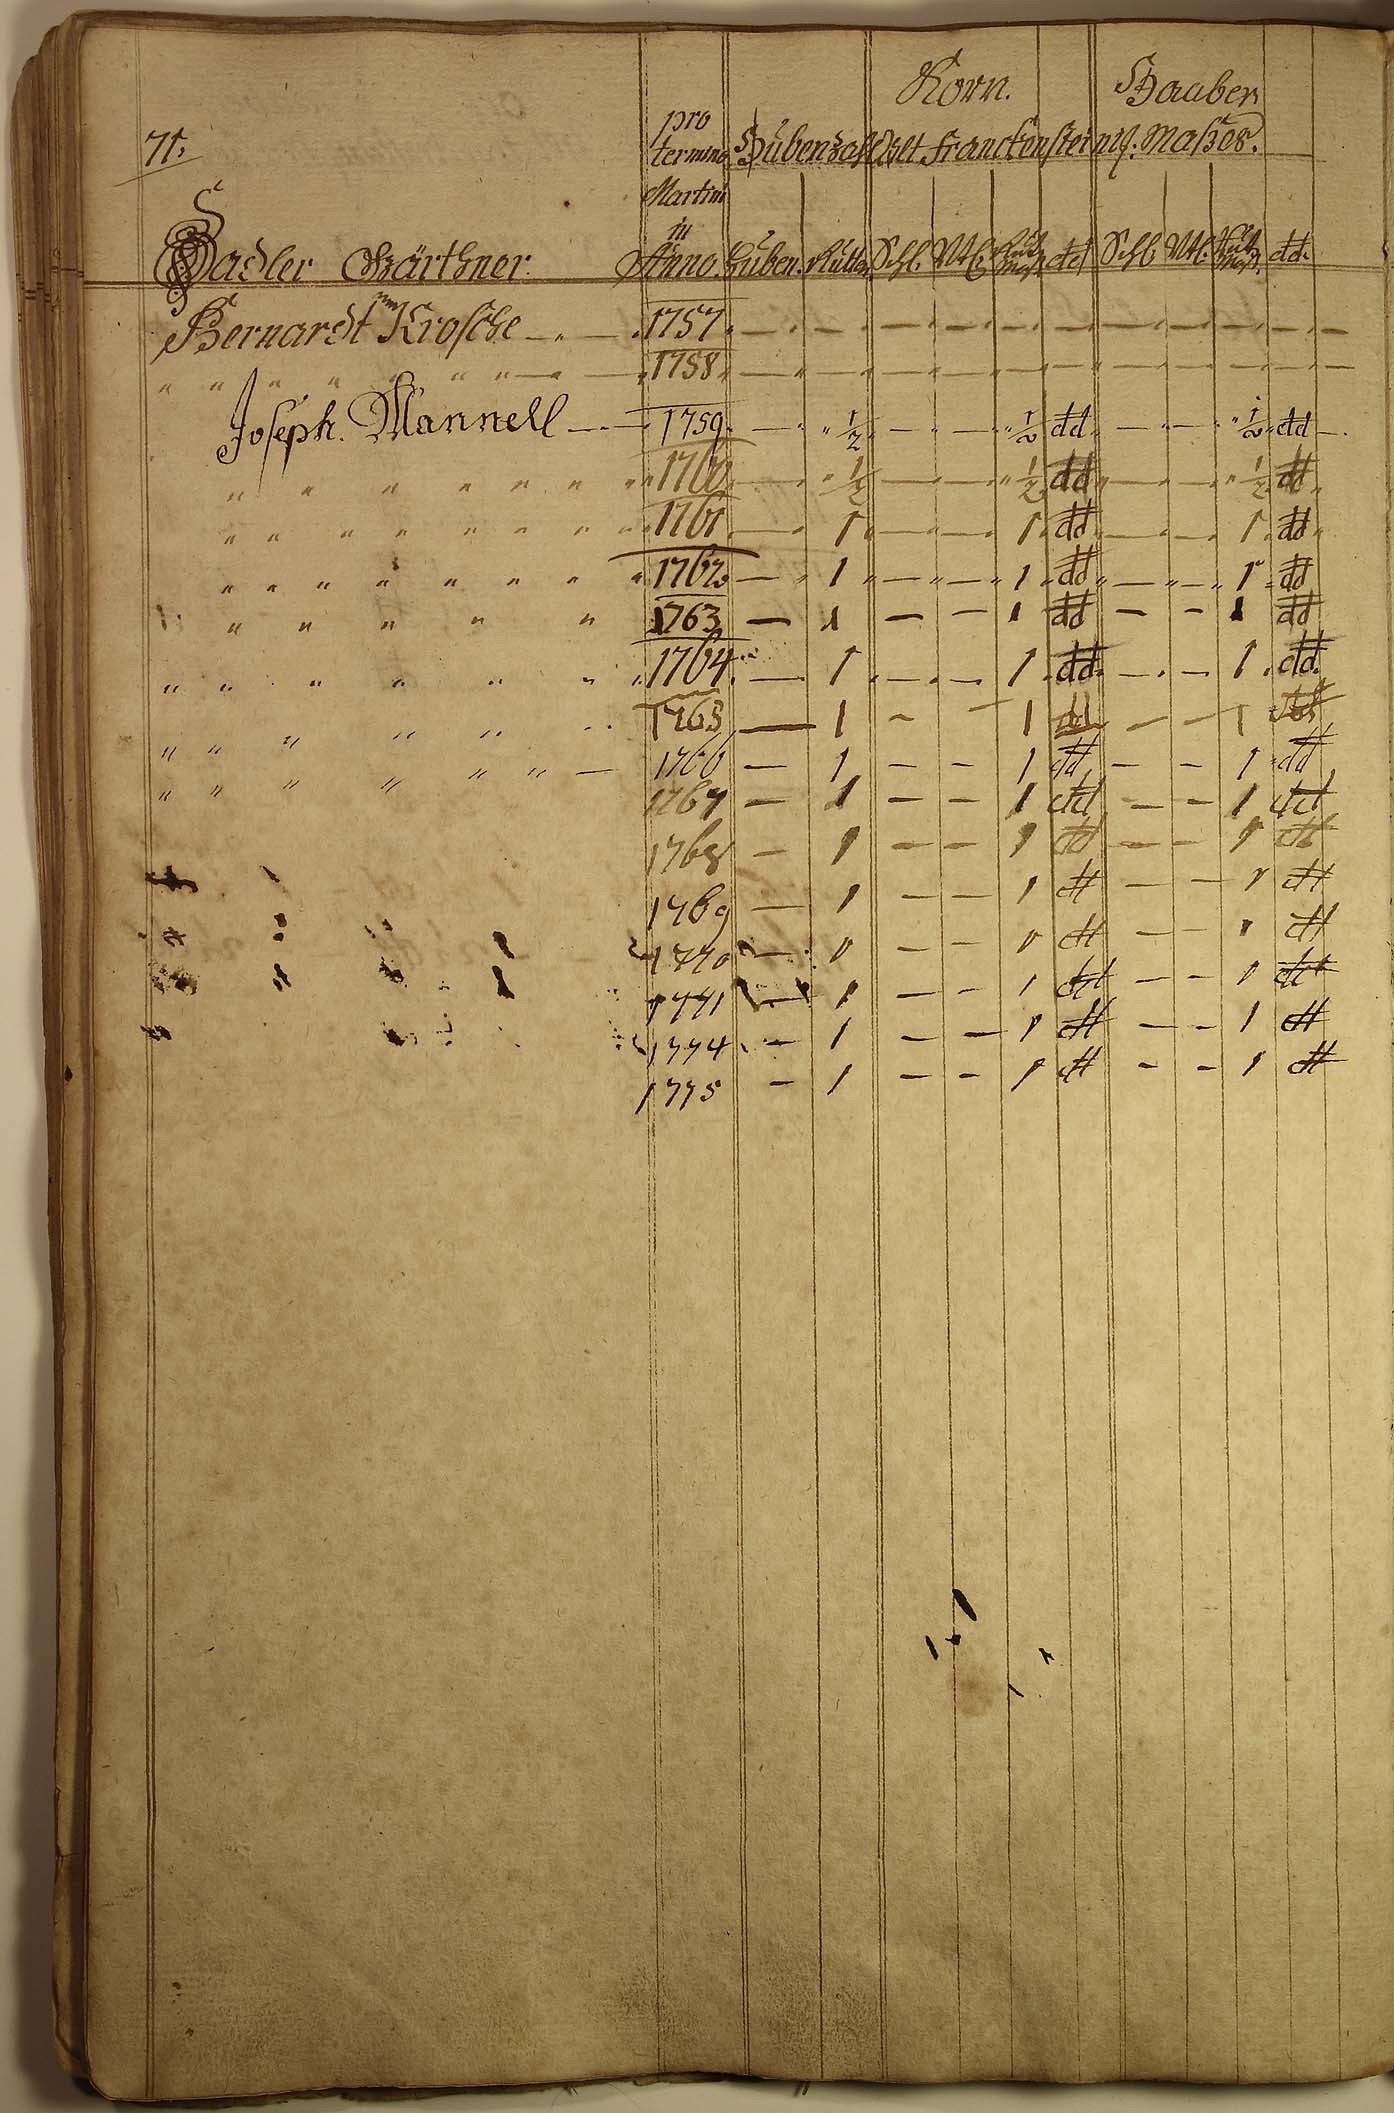 Korn. Haaber
71.
pro termino Martini in Anno. Hubenzahl Alt Franckenstein. Maßes.
Gärthner Huben. Rutten Schl. Vtl. dd Schl Vtl. dd.
Bernardt Krosche — " — 1757. — " — " — " — " — " — " — " —
" " " " " " " — 1758. — " — " — " — " — " — " — " —
Joseph. Mannell — 1759. — " 1/2 " — " — " 1/2 dd " — " — " 1/2 " dd —
" " " " " " " 1760 — " 1/2 " — " — " 1/2 dd " — " — " 1/2 dd
" " " " " " " " 1761 — " 1 " — " — " 1 dd " — " — " 1 dd
" " " " " " " " 1762 — " 1 " — " — " 1 dd " — " — " 1 dd
" " " " " 1763 — 1 — — 1 dd — — 1 dd
" " " " " " " 1764 — 1 — — 1 dd — — 1 dd
" " " " " 1765 — 1 — — 1 dd — — 1 dd
" " " " " " — 1766 — 1 — — 1 dd — — 1 dd
1767 — 1 — — 1 dd — — 1 dd
1768 — 1 — — 1 dd — — 1 dd
1769 — 1 — — 1 dd — — 1 dd
1770 — 1 — — 1 dd — — 1 dd
1771 — 1 — — 1 dd — — 1 dd
1774 — 1 — — 1 dd — — 1 dd
1775 — 1 — — 1 dd — — 1 dd